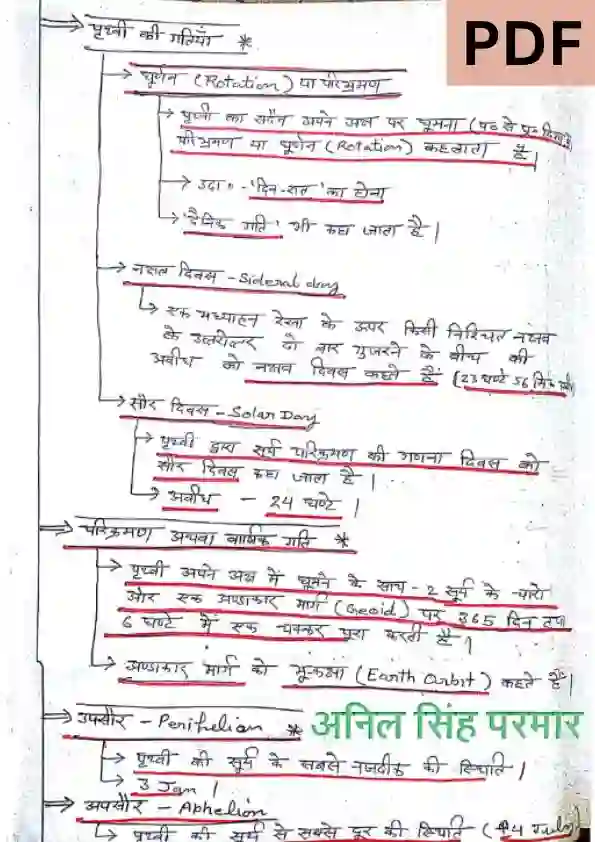 PDF
⇒ पृथ्वी की गतियाँ *
→ घूर्णन (Rotation) या परिभ्रमण
→ पृथ्वी का सदैव अपने अक्ष पर घूमना (प० से पू० दिशा)
परिभ्रमण या घूर्णन (Rotation) कहलाता है।
→ उदा०- 'दिन-रात' का होना
→ 'दैनिक गति' भी कहा जाता है।
→ नक्षत्र दिवस - Sideral day
→ एक मध्याहन रेखा के ऊपर किसी निश्चित नक्षत्र
के उत्तरोत्तर दो बार गुजरने के बीच की
अवधि को नक्षत्र दिवस कहते हैं (23 घण्टे 56 मिनट
→ सौर दिवस - Solar Day
→ पृथ्वी द्वारा सूर्य परिक्रमण की गणना दिवस को
सौर दिवस कहा जाता है।
→ अवधि - 24 घण्टे।
⇒ परिक्रमण अथवा वार्षिक गति *
→ पृथ्वी अपने अक्ष में घूमने के साथ-2 सूर्य के चारो
ओर एक अण्डाकार मार्ग (Geoid) पर 365 दिन तथा
6 घण्टे में एक चक्कर पूरा करती है।
→ अण्डाकार मार्ग को भू-कक्षा (Earth Orbit) कहते हैं।
⇒ उपसौर - Perihelian *
अनिल सिंह परमार
→ पृथ्वी की सूर्य के सबसे नजदीक की स्थिति।
→ 3 Jan।
⇒ अपसौर - Aphelion
→ पृथ्वी की सूर्य से सबसे दूर की स्थिति (4 July)